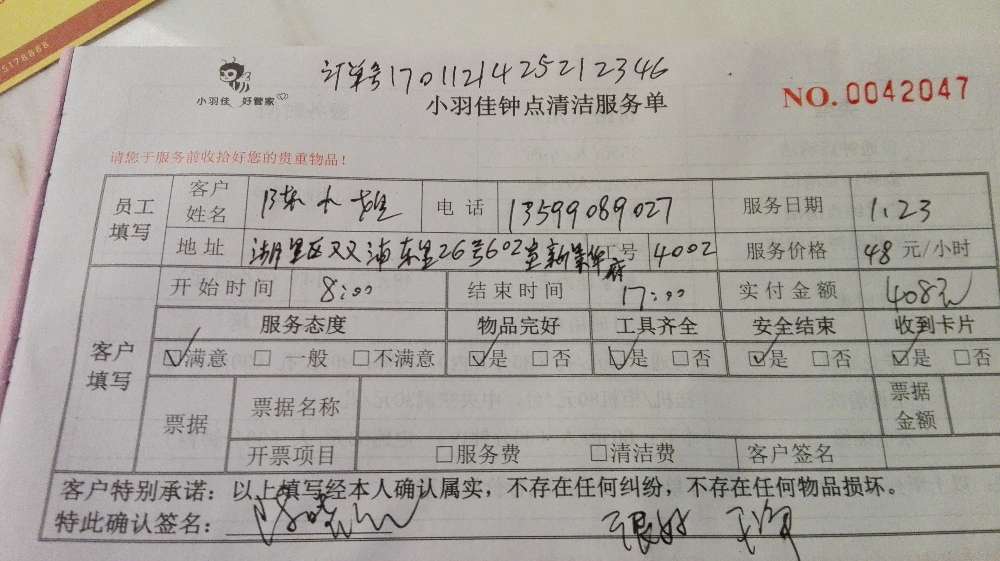 5178888
订单号1701121425212346
小羽佳 好管家
小羽佳钟点清洁服务单
NO. 0042047
请您于服务前收拾好您的贵重物品！
员工填写 客户姓名 陈小姐 电话 13599089027 服务日期 1.23
地址 湖里区双浦东里26号602室新景华府 工号 4002 服务价格 48 元/小时
客户填写 开始时间 8:00 结束时间 17:00 实付金额 408元
服务态度 物品完好 工具齐全 安全结束 收到卡片
☑满意 □一般 □不满意 ☑是 □否 ☑是 □否 ☑是 □否 ☑是 □否
票据 票据名称 票据金额
开票项目 □服务费 □清洁费 客户签名
客户特别承诺：以上填写经本人确认属实，不存在任何纠纷，不存在任何物品损坏。
特此确认签名： 很好